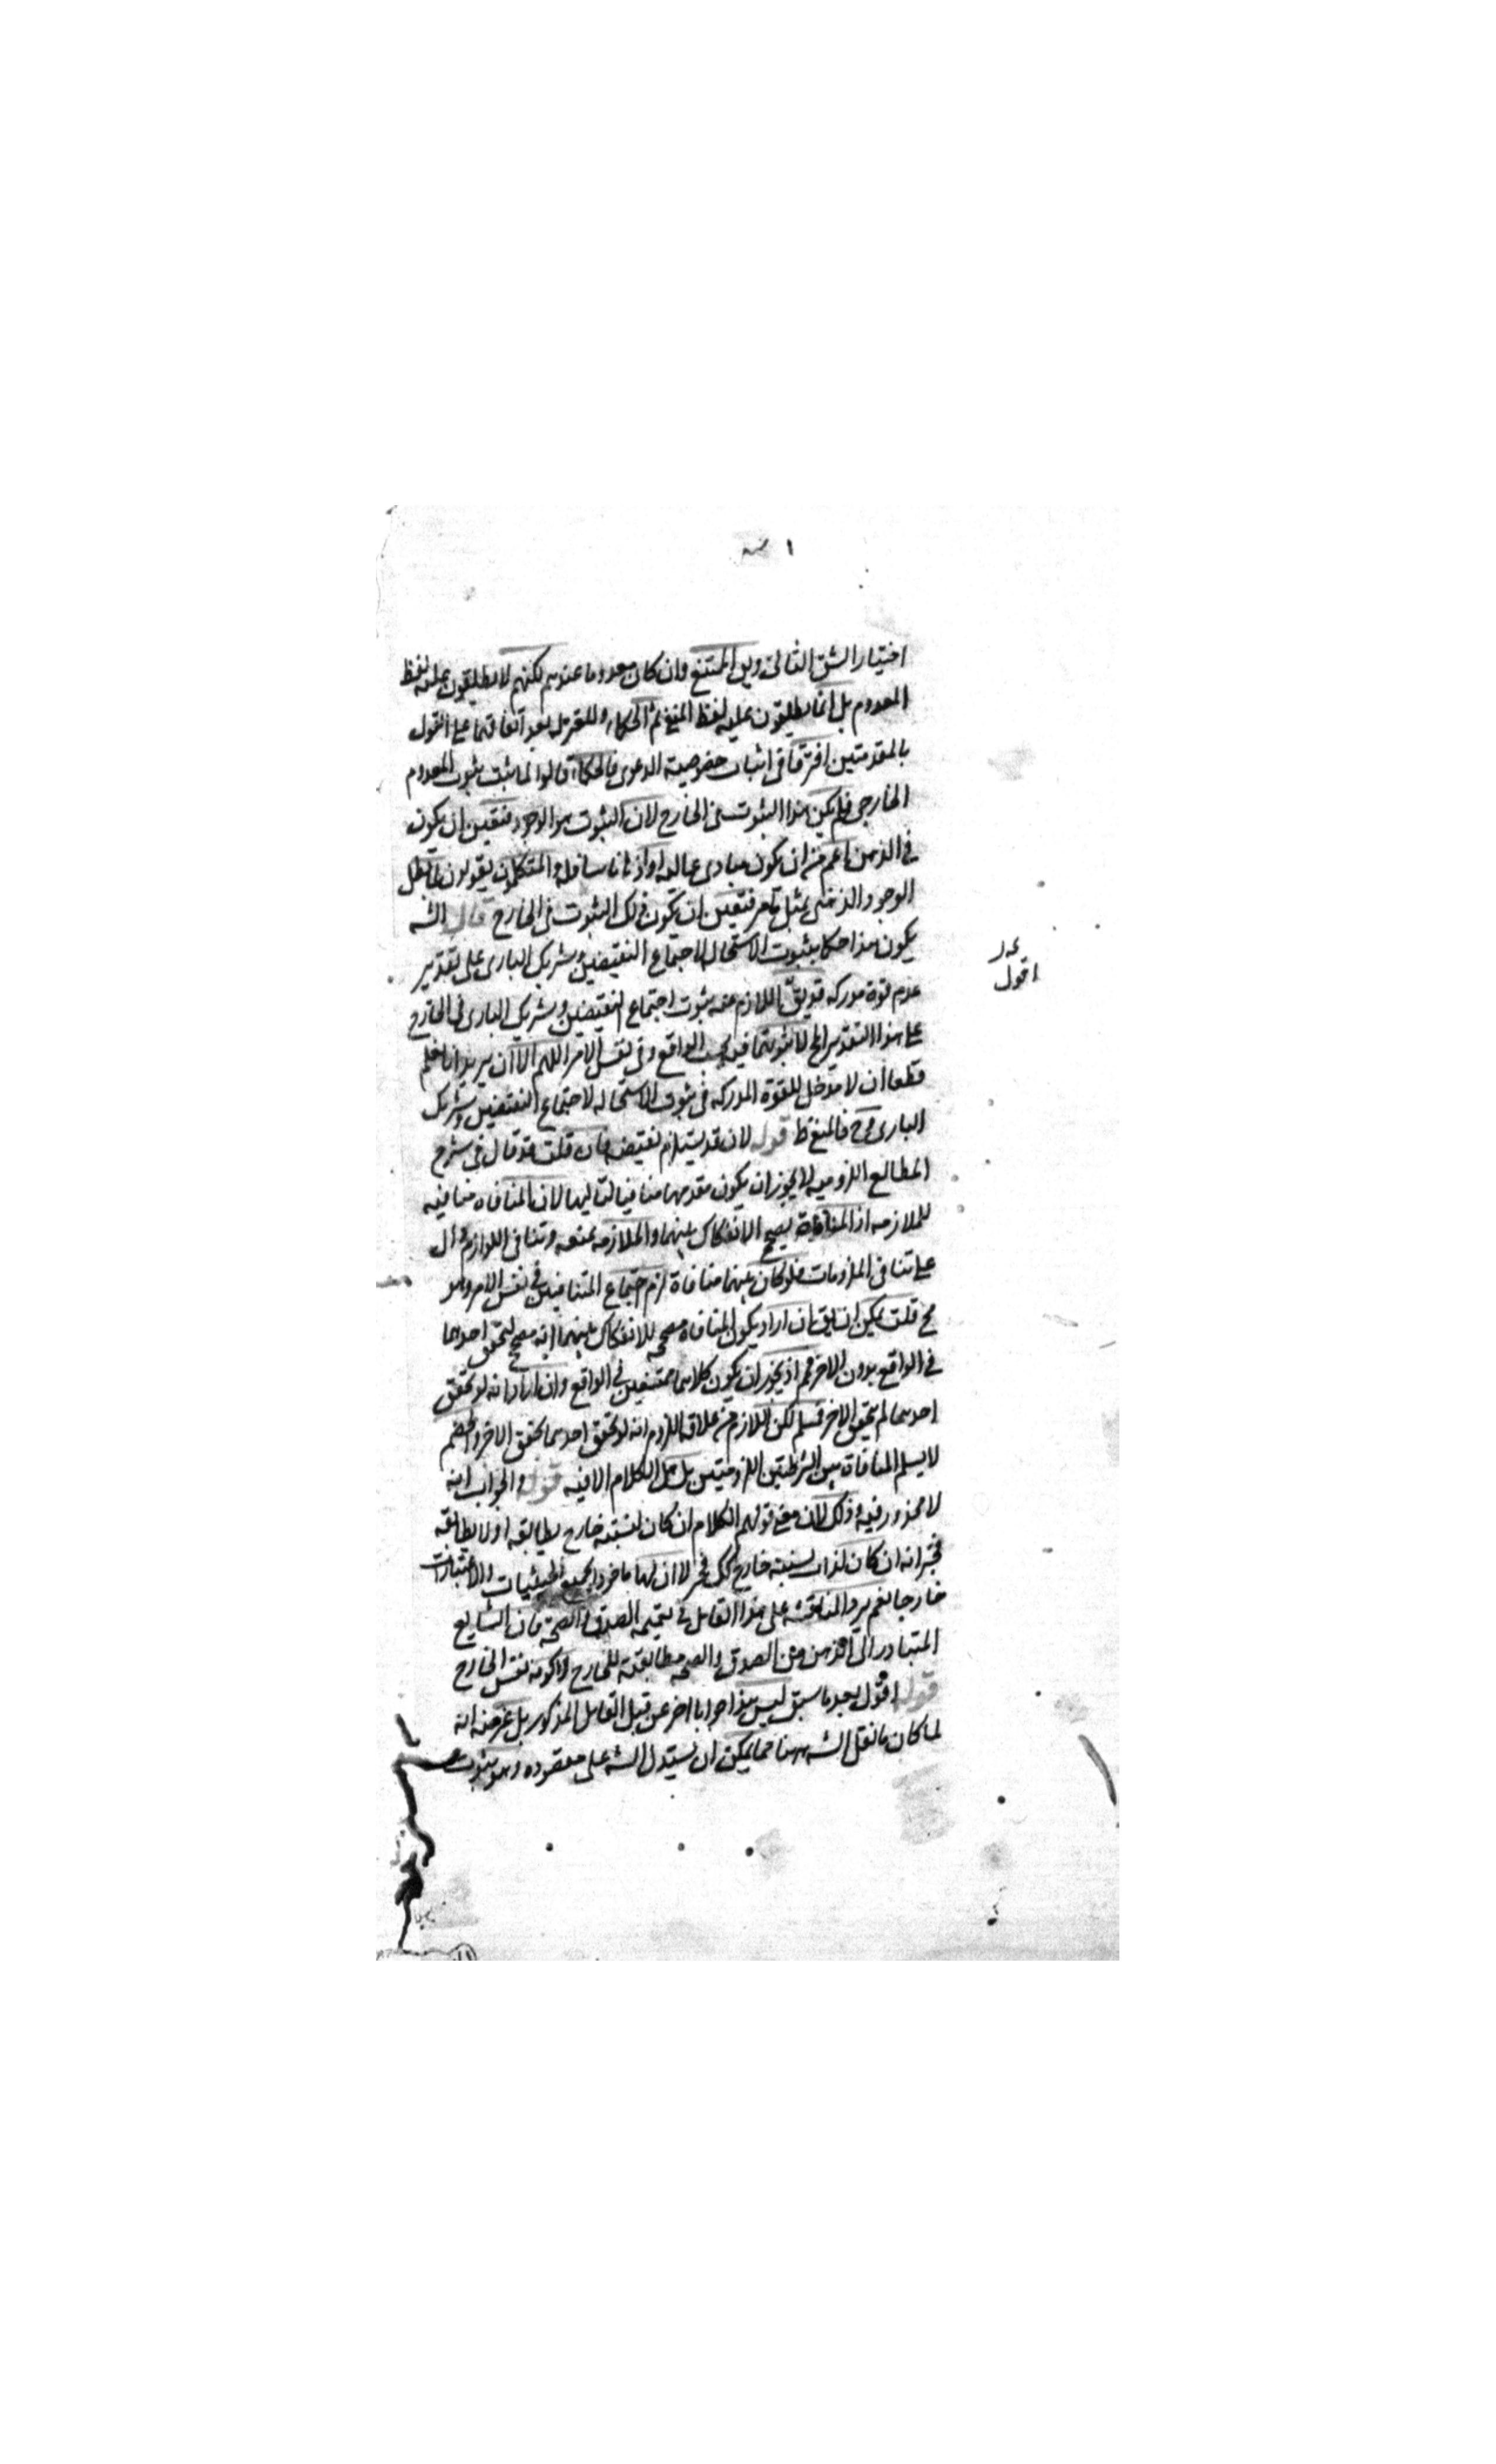 اختيار الشق الثالث وبين الممتنع وان كان معدوما عندهم لكنهم لا يطلقون عليه لفظ
المعدوم بل انما يطلقون عليه لفظ المنفى ثم الحكماء والمعتزلة بعد اتفاقهما على القول
بالمقدمتين افترقا فى اثبات خصوصية الدعوى فالحكماء قالوا لما ثبت ثبوت المعدوم
الخارجى فلم يكن هذا الثبوت فى الخارج لان الثبوت هو الوجود فتعين ان يكون
فى الذهن اعم من ان يكون مبادى عالية او اذهانا سافلة والمتكلمون يقولون لما بطل
الوجود الذهنى بمثل ما مر فتعين ان يكون ذلك الثبوت فى الخارج قال الش
يكون هذا حكما بثبوت الاستحالة لاجتماع النقيضين وشريك البارى على تقدير
عدم قوة مدركة قد يق اللازم منه ثبوت اجتماع النقيضين وشريك البارى فى الخارج
على هذا التقدير المح لا ثبوتهما فيه بحسب الواقع وفى نفس الامر اللهم الا ان يريد انا نعلم
قطعا أن لا مدخل للقوة المدركة فى ثبوت الاستحالة لاجتماع النقيضين وشريك
البارى قوله لان قد يستلزم نقيضه فان قلت قد قال فى شرح
المطالع اللزومية لا يجوز ان يكون مقدمها منافيا لتاليها لان المنافاه منافية
للملازمه اذ المنافاة يصحح الانفكاك بينهما والملازمه يمنعه وتنافى اللوازم دال
على تنافى الملزومات فلو كان بينهما منافاة لزم اجتماع المتنافيين فى نفس الامر وهو
مح قلت يمكن ان يق ان اراد بكون المنافاة مصححه للانفكاك بينهما انه مصحح لتحقق احدهما
فى الواقع بدون الاخر فمم اذ يجوز ان يكون كلاهما ممتنعين فى الواقع وان اراد انه لو تحقق
احدهما لم يتحقق الاخر فمسلم لكن اللازم من علاقة اللزوم انه لو تحقق احدهما تحقق الاخر والخصم
لا يسلم المنافات بين الشرطيتين اللزوميتين بل الكلام الا فيه قوله والجواب انه
لا محذور فيه وذلك لان معنى قولهم الكلام ان كان لنسبته خارج يطابقه او لا يطابقه
فخبر انه ان كان لذات نسبته خارج كك فخبر لا ان لها ماخوذا بجميع الحيثيات والاعتبارات
خارجا نعم يرد المناقشة على هذا القائل فى تعميم الصدق والصحة فان الشايع
المتبادر الى الذهن من الصدق والصحه مطابقته للخارج لا كونه نفس الخارج
قوله اقول بعد ما سبق ليس هذا جوابا اخر عن قبل القائل المذكور بل غرضه انه
لما كان ما نقل الش ههنا مما يمكن ان يستدل الش على مقصوده وهو ثبوت
اقول